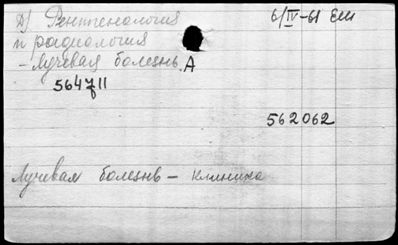 2) Рентгенология 6/IV-61 Еш
и радиология
- Лучевая болезнь. А
564711
562062
Лучевая болезнь - клиника